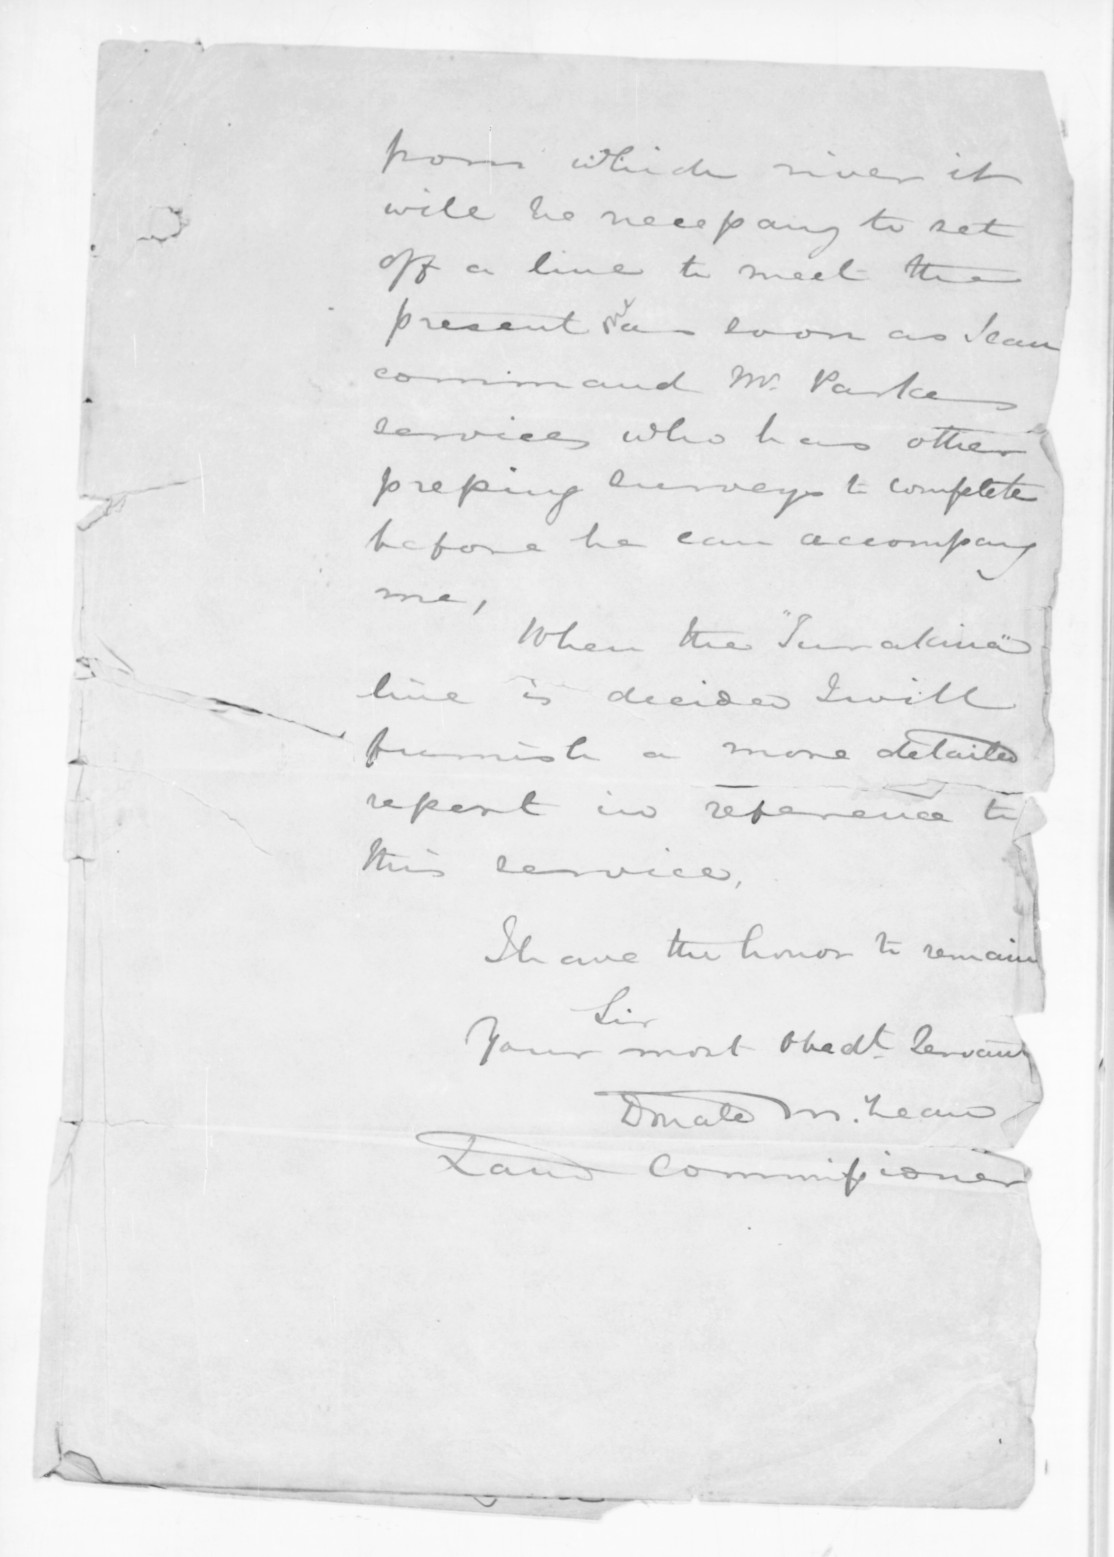 from which river it
will be necessary to set
off a line to meet the
present as soon as I can
command Mr. Parkes
services who has other
pressing surveys to complete
before he can accompany
me,
When the "Turakina"
line is decided I will
furnish a more detailed
report in reference to
this service.
I have the honor to remain
Sir
Your most Obedt. Servant
Donald McLean
Land Commissioner